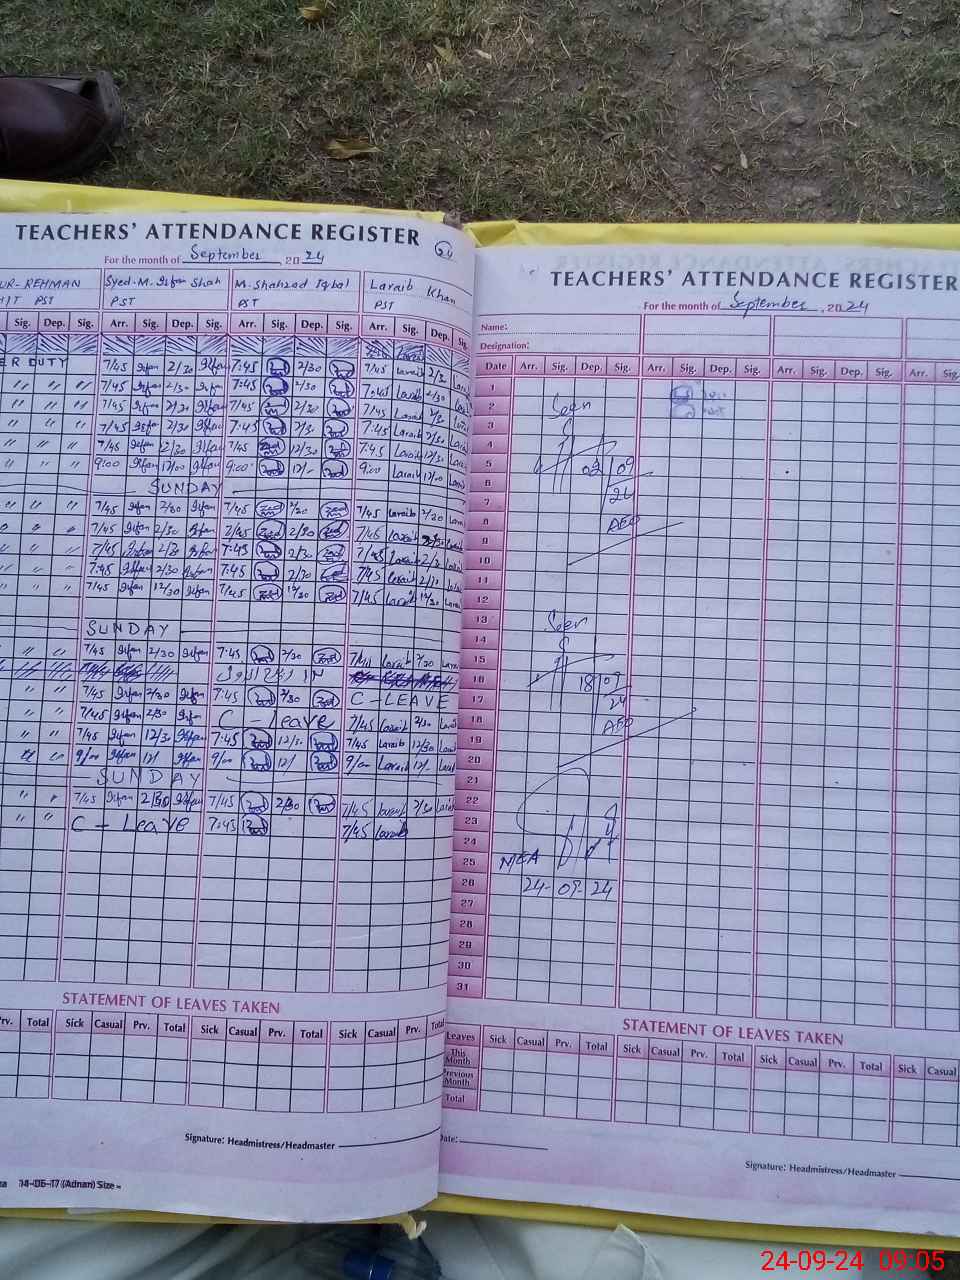 TEACHERS' ATTENDANCE REGISTER
24
For the month of September, 2024
UR-REHMAN Syed-M. Irfan Shah M. Shahzad Iqbal Laraib Khan
PST PST PST PST
Sig. Dep. Sig. Arr. Sig. Dep. Sig. Arr. Sig. Dep. Sig. Arr. Sig. Dep. Sig.
ER DUTY 7/45 Irfan 2/30 Irfan 7:45 2/30 7/45 Laraib 2/30
" " " 7/45 Irfan 2/30 Irfan 7:45 2/30 7:45 Laraib 2/30
" " " 7/45 Irfan 2/30 Irfan 7/45 2/30 7/45 Laraib 2/30
" " " 7/45 Irfan 2/30 Irfan 7:45 2/30 7:45 Laraib 2/30
" " " 7/45 Irfan 12/30 Irfan 7/45 12/30 7:45 Laraib 12/30
" " " 9:00 Irfan 12/00 Irfan 9:00 12/- 9:00 Laraib 12/00
SUNDAY
" " " 7/45 Irfan 2/30 Irfan 7/45 2/30 7/45 Laraib 2/30
7/45 Irfan 2/30 Irfan 7/45 2/30 7/45 Laraib
" " " 7/45 Irfan 2/30 Irfan 7:45 2/30 7/45 Laraib 2/30
" " " 7:45 Irfan 2/30 Irfan 7:45 2/30 7/45 Laraib 2/30
" " " 7/45 Irfan 12/30 Irfan 7/45 12/30 7/45 Laraib 12/30
SUNDAY
" " 7/45 Irfan 2/30 Irfan 7:45 2/30 Laraib 2/30
" " 7/45 Irfan 2/30 Irfan 7:45 2/30 C-LEAVE
" " 7/45 Irfan 2/30 Irfan C-Leave 7/45 Laraib 2/30
" " 7/45 Irfan 12/30 Irfan 7:45 12/30 7/45 Laraib 12/30
9/00 Irfan 12/ Irfan 9/00 12/ 9/00 Laraib 12/-
SUNDAY
" " 7/45 Irfan 2/30 Irfan 7/45 2/30 7/45 Laraib 2/30
" " C-Leave 7:45 7/45 Laraib
STATEMENT OF LEAVES TAKEN
Prv. Total Sick Casual Prv. Total Sick Casual Prv. Total Sick Casual Prv. Total
Signature: Headmistress/Headmaster
14-06-17 (Adnan) Size
TEACHERS' ATTENDANCE REGISTER
For the month of September, 2024
Name:
Designation:
Date Arr. Sig. Dep. Sig. Arr. Sig. Dep. Sig. Arr. Sig. Dep. Sig. Arr. Sig.
1
2 Seen
3
4
5 02/09
6 24
7
8 AEO
9
10
11
12
13 Seen
14
15
16 18/09
17 24
18 AEO
19
20
21
22
23
24
25 MEA
26 24-09-24
27
28
29
30
31
STATEMENT OF LEAVES TAKEN
Leaves Sick Casual Prv. Total Sick Casual Prv. Total Sick Casual Prv. Total Sick Casual
This Month
Previous Month
Total
Date:
Signature: Headmistress/Headmaster
24-09-24 09:05